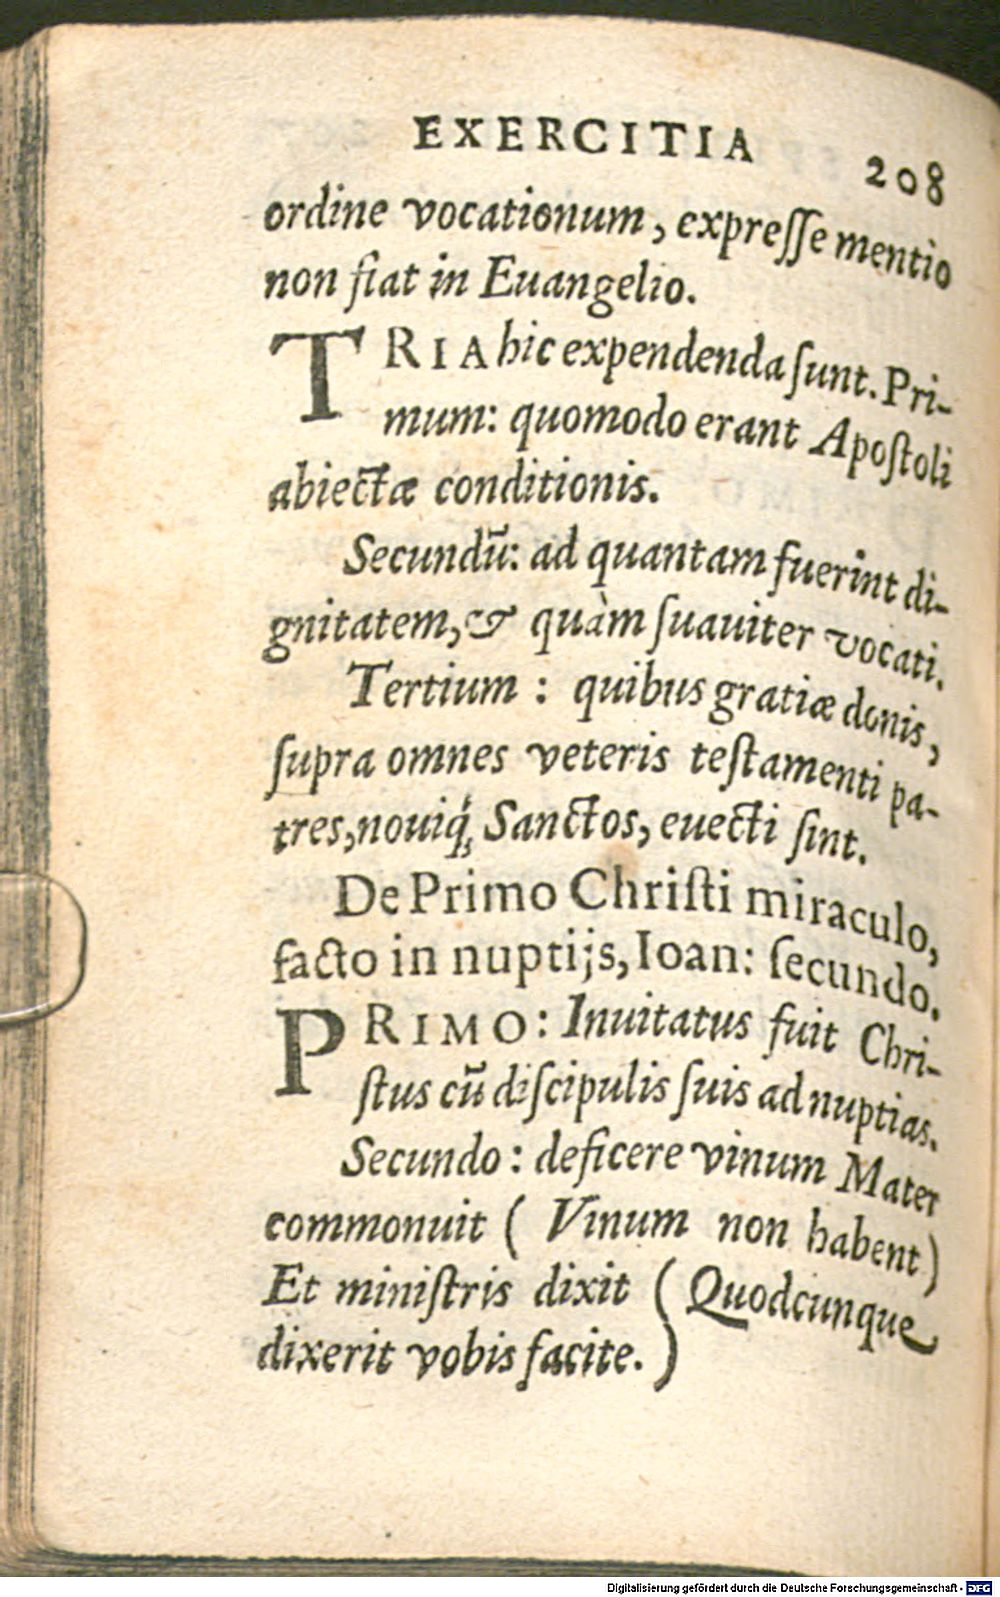 EXERCITIA 208
ordine vocationum, expreſſe mentio
non fiat in Euangelio.
TRIA hic expendenda ſunt. Pri-
mum: quomodo erant Apoſtoli
abiectæ conditionis.
Secundū: ad quantam fuerint di-
gnitatem, & quàm ſuauiter vocati.
Tertium : quibus gratiæ donis,
ſupra omnes veteris teſtamenti pa-
tres, nouiq́; Sanctos, euecti ſint.
De Primo Chriſti miraculo,
facto in nuptijs, Ioan: ſecundo.
PRIMO: Inuitatus fuit Chri-
ſtus cū diſcipulis ſuis ad nuptias.
Secundo : deficere vinum Mater
commonuit ( Vinum non habent )
Et miniſtris dixit ( Quodcunque
dixerit vobis facite. )
Digitalisierung gefördert durch die Deutsche Forschungsgemeinschaft - DFG